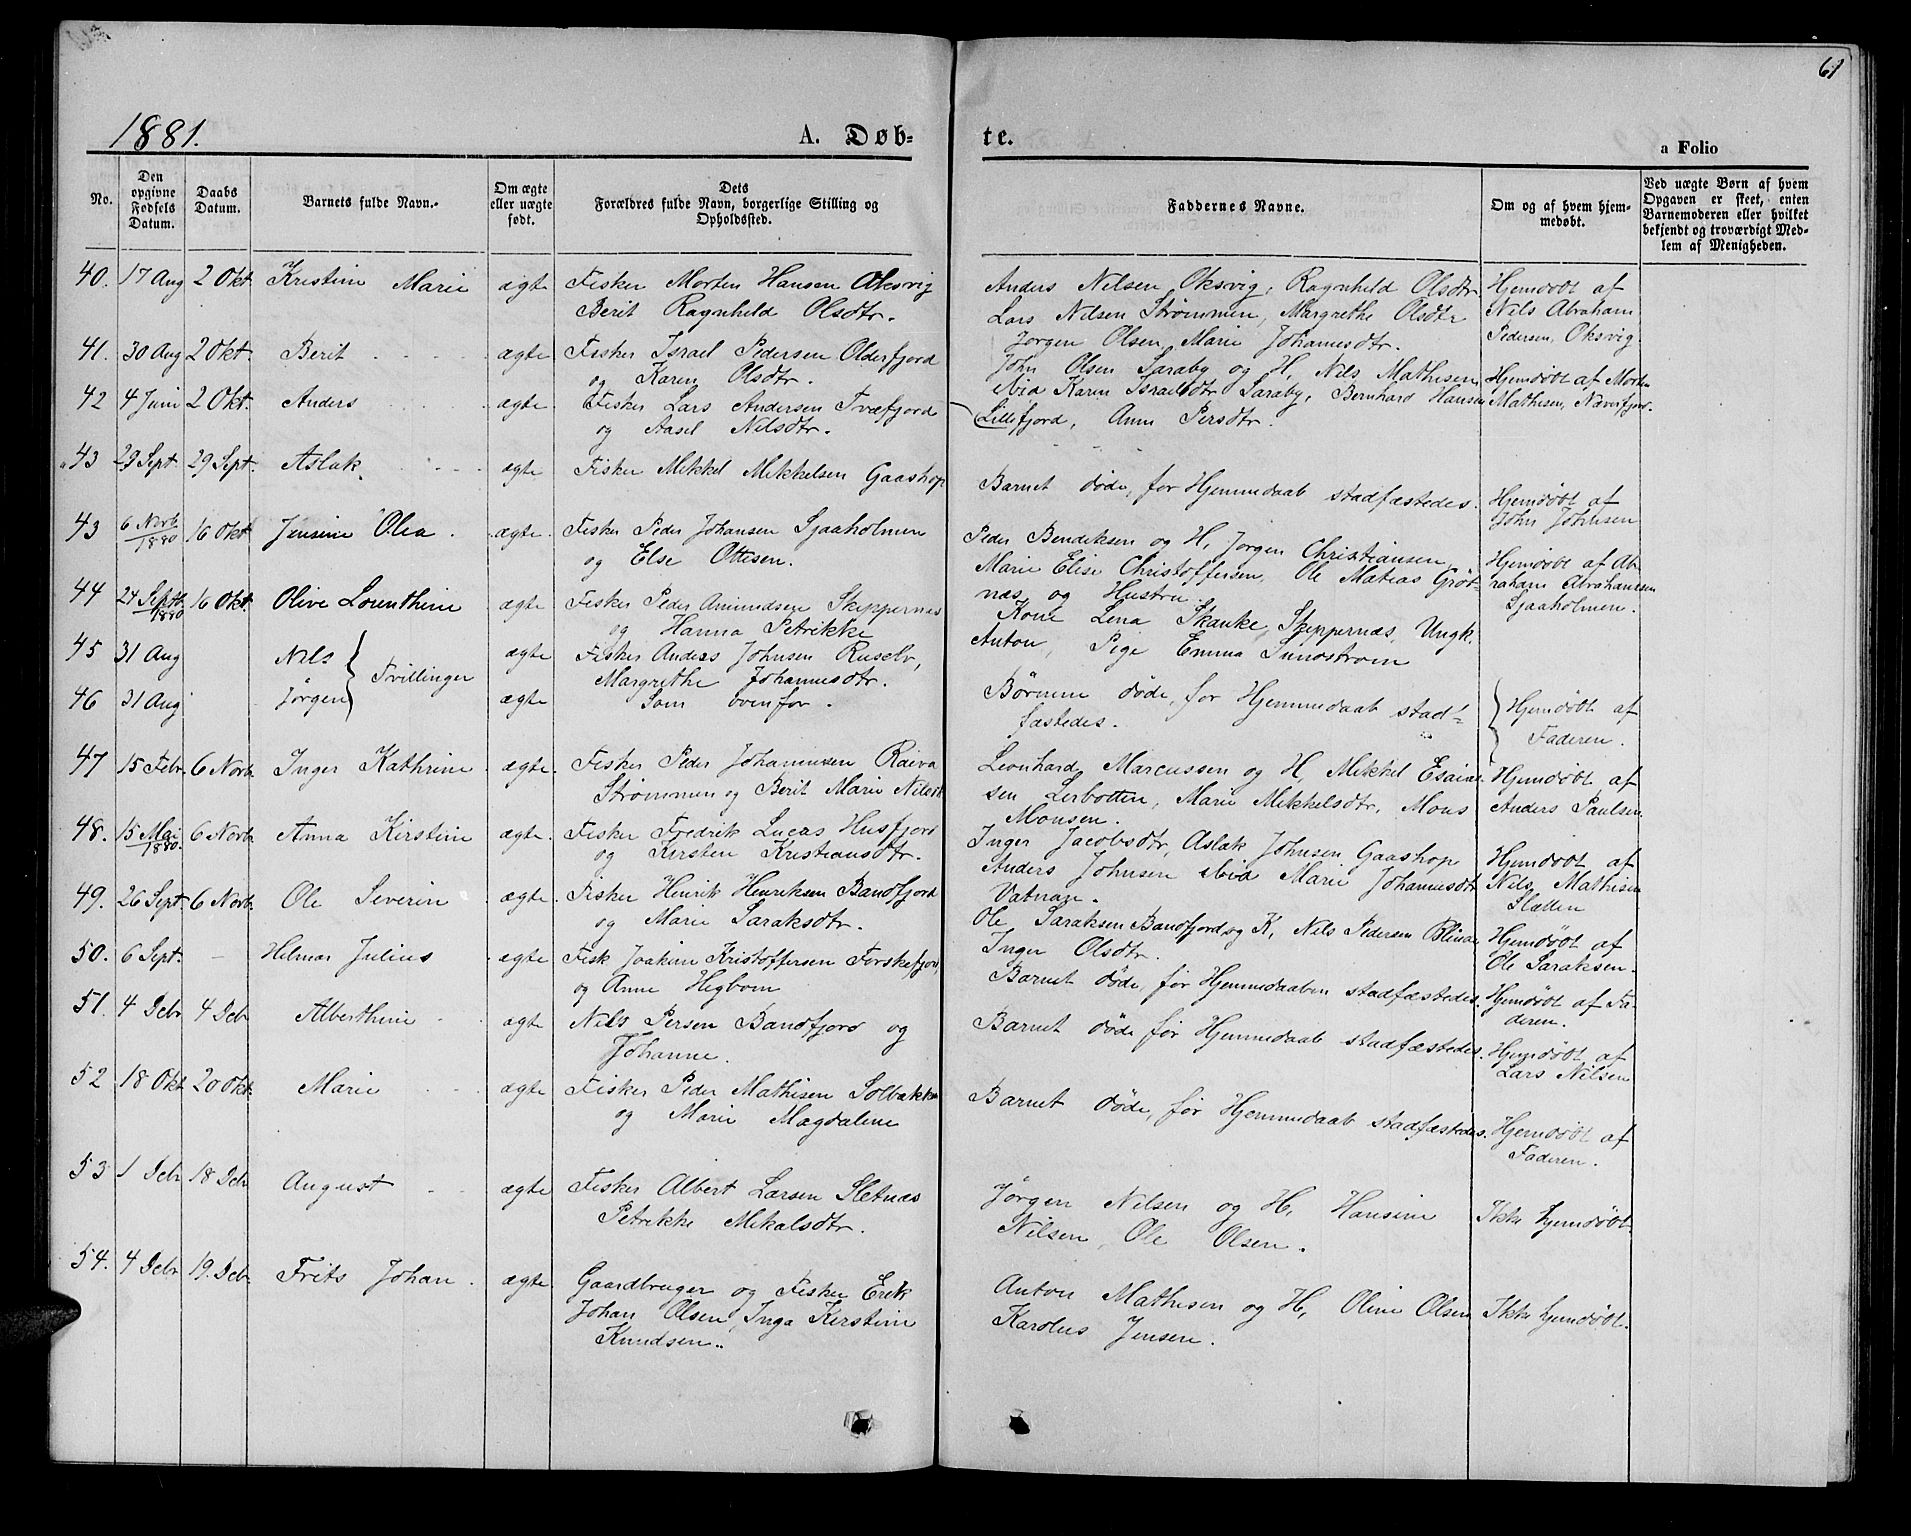 61
1881.
A. Døb-
te.
a Folio
No.
Den opgivne Fødsels Datum.
Daabs Datum.
Barnets fulde Navn.
Om ægte eller uægte født.
Dets Forældres fulde Navn, borgerlige Stilling og Opholdssted.
Faddernes Navne.
Om og af hvem hjem-
medøbt.
Ved uægte Børn af hvem
Opgaven er skeet, enten
Barnemoderen eller hvilket
bekjendt og troværdigt Med-
lem af Menigheden.
40. 17 Aug 2 Okt Kristine Marie ægte Fisker Morten Hansen Oksvig
Berit Ragnhild Olsdtr.
Anders Nilsen Oksvig, Ragnhild Olsdtr
Lars Nilsen Strømmen, Margrethe Olsdtr
Jørgen Olsen, Marie Johannesdtr.
Hjemdøbt af
Nils Abraham
Pedersen, Oksvig.
41. 30 Aug 2 Okt. Berit ægte Fisker Israel Pedersen Olderfjord
og Karen Olsdtr.
John Olsen Saraby og H, Nils Mathisen
ibid Karen Israelsdtr Saraby, Bernhard Hansen
Lillefjord, Anne Persdtr.
Hjemdøbt af Morten
Mathisen, Næverfjord.
42 4 Juni 2 Okt. Anders ægte Fisker Lars Andersen Tvæfjord
og Aasel Nilsdtr.
43 29 Sept. 29 Sept. Aslak ægte Fisker Mikkel Mikkelsen Gaashop
Barnet døde, før Hjemmedaab stadfæstedes.
Hjemdøbt af
John Johnsen
43 6 Novb. 1880 16 Okt Jensine Olea. ægte. Fisker Peder Johansen Sjaaholmen
og Else Ottesen.
Peder Bendiksen og H, Jørgen Christiansen,
Marie Elise Christoffersen, Ole Matias Grøt-
næs og Hustru.
Hjemdøbt af Ab-
raham Abrahamsen
Sjaaholmen.
44 24 Septb. 1880 16 Okt. Olive Lorenthine ægte Fisker Peder Amundsen Skippernæs
og Hanna Petrikke
Kone Lena Skanke, Skippernæs, Ungk.
Anton, Pige Emma Sundstrøm
45 31 Aug Nils ægte Fisker Anders Johnsen Ruselv,
Tvillinger
Margrethe Johannesdtr.
46 31 Aug Jørgen ægte Som ovenfor.
Børnene døde, før Hjemmedaab stad-
fæstedes.
Hjemdøbt af
Faderen.
47 15 Febr. 6 Novb. Inger Kathrine ægte. Fisker Peder Johannesen Raiva
Strømmen og Berit Marie Nilsdt
Leonhard Marcussen og H, Mikkel Esaias-
sen Lerbotten, Marie Mikkelsdtr, Mons
Monsen.
Hjemdøbt af
Anders Paulsen
48. 15 Mai 1880. 6 Novb. Anna Kirstine ægte. Fisker Fredrik Lucas Husfjord
og Kirsten Kristiansdtr.
Inger Jacobsdtr, Aslak Johnsen Gaashop
Anders Johnsen ibid Marie Johannesdtr
Vatnan.
Hjemdøbt af
Nils Mathisen
Sletten
49. 26 Sept 6 Novb. Ole Severin ægte. Fisker Henrik Henriksen Bandfjord
og Marie Saraksdtr.
Ole Saraksen Bandfjord og K, Nils Pedersen
Inger Olsdtr.
Hjemdøbt af
Ole Saraksen.
50. 6 Sept. — Helmer Julius ægte Fisk Joakim Kristoffersen Torskefjord,
og Anne Hegbom
Barnet døde, før Hjemmedaaben stadfæstedes.
Hjemdøbt af Fa-
deren.
51. 4 Debr 4 Debr Alberthine ægte Nils Persen Bandfjord og
Johanne.
Barnet døde før Hjemmedaab stadfæstedes.
Hjemdøbt af
Lars Nilsen
52 18 Okt 20 Okt. Marie ægte Fisker Peder Mathisen Solbakken
og Marie Magdalene
Barnet døde, før Hjemmedaab stadfæstedes.
Hjemdøbt af
Faderen.
53 1 Debr 18 Debr August ægte Fisker Albert Larsen Sletnæs
Petrikke Mikalsdtr.
Jørgen Nilsen og H, Hansine
Nilsen, Ole Olsen.
Ikke hjemdøbt.
54. 4 Debr 19. Debr. Frits Johan. ægte Gaardbruger og Fisker Erik
Johan Olsen, Inga Kirstine
Knudsen..
Anton Mathisen og H, Oline Olsen
Karolus Jensen.
Ikke hjemdøbt.